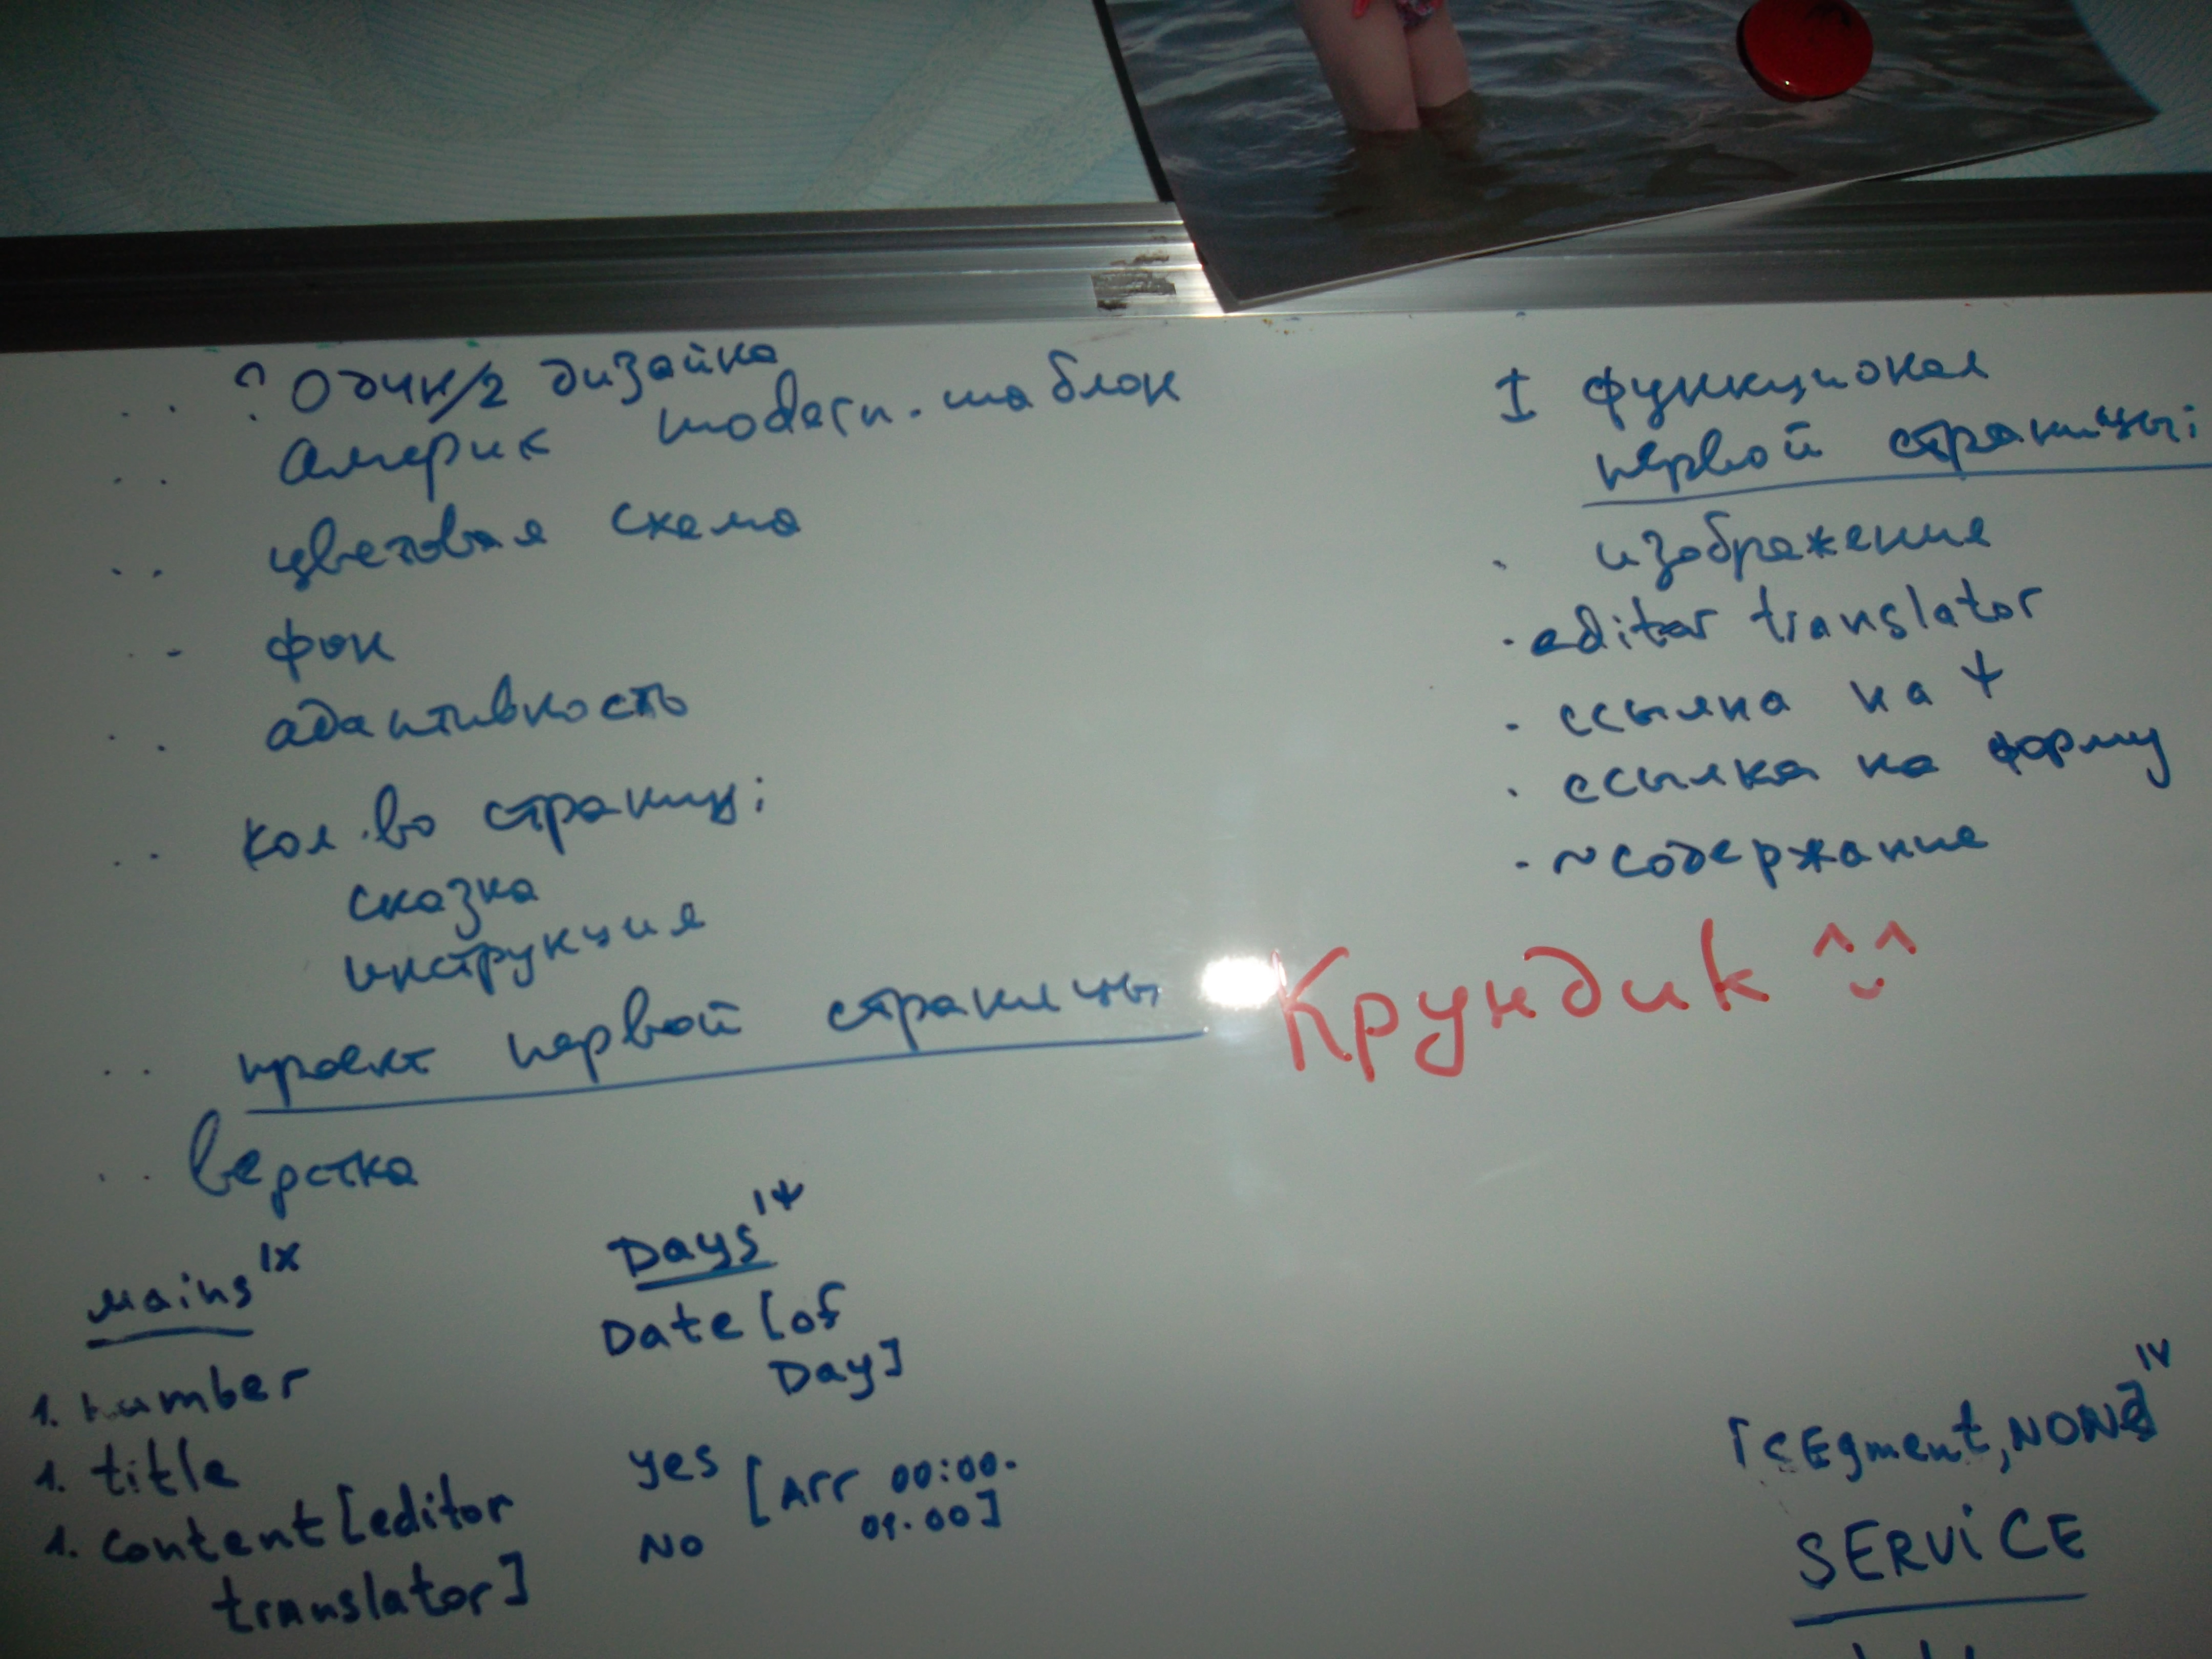 ? Один/2 дизайна
Америк modern. шаблон
цветовая схема
фон
адаптивность
кол.во страниц:
сказка
инструкция
проект первой страницы
верстка
I функционал
первой страницы:
· изображение
· editor translator
· ссылка на ↓
· ссылка на форму
· ~ содержание
Крундик ^^
mains IX
1. number
1. title
1. content [editor
translator]
Days
Date [of
Day]
yes [Arr 00:00-
No 09.00]
[sEgment, NONE] IV
SERViCE